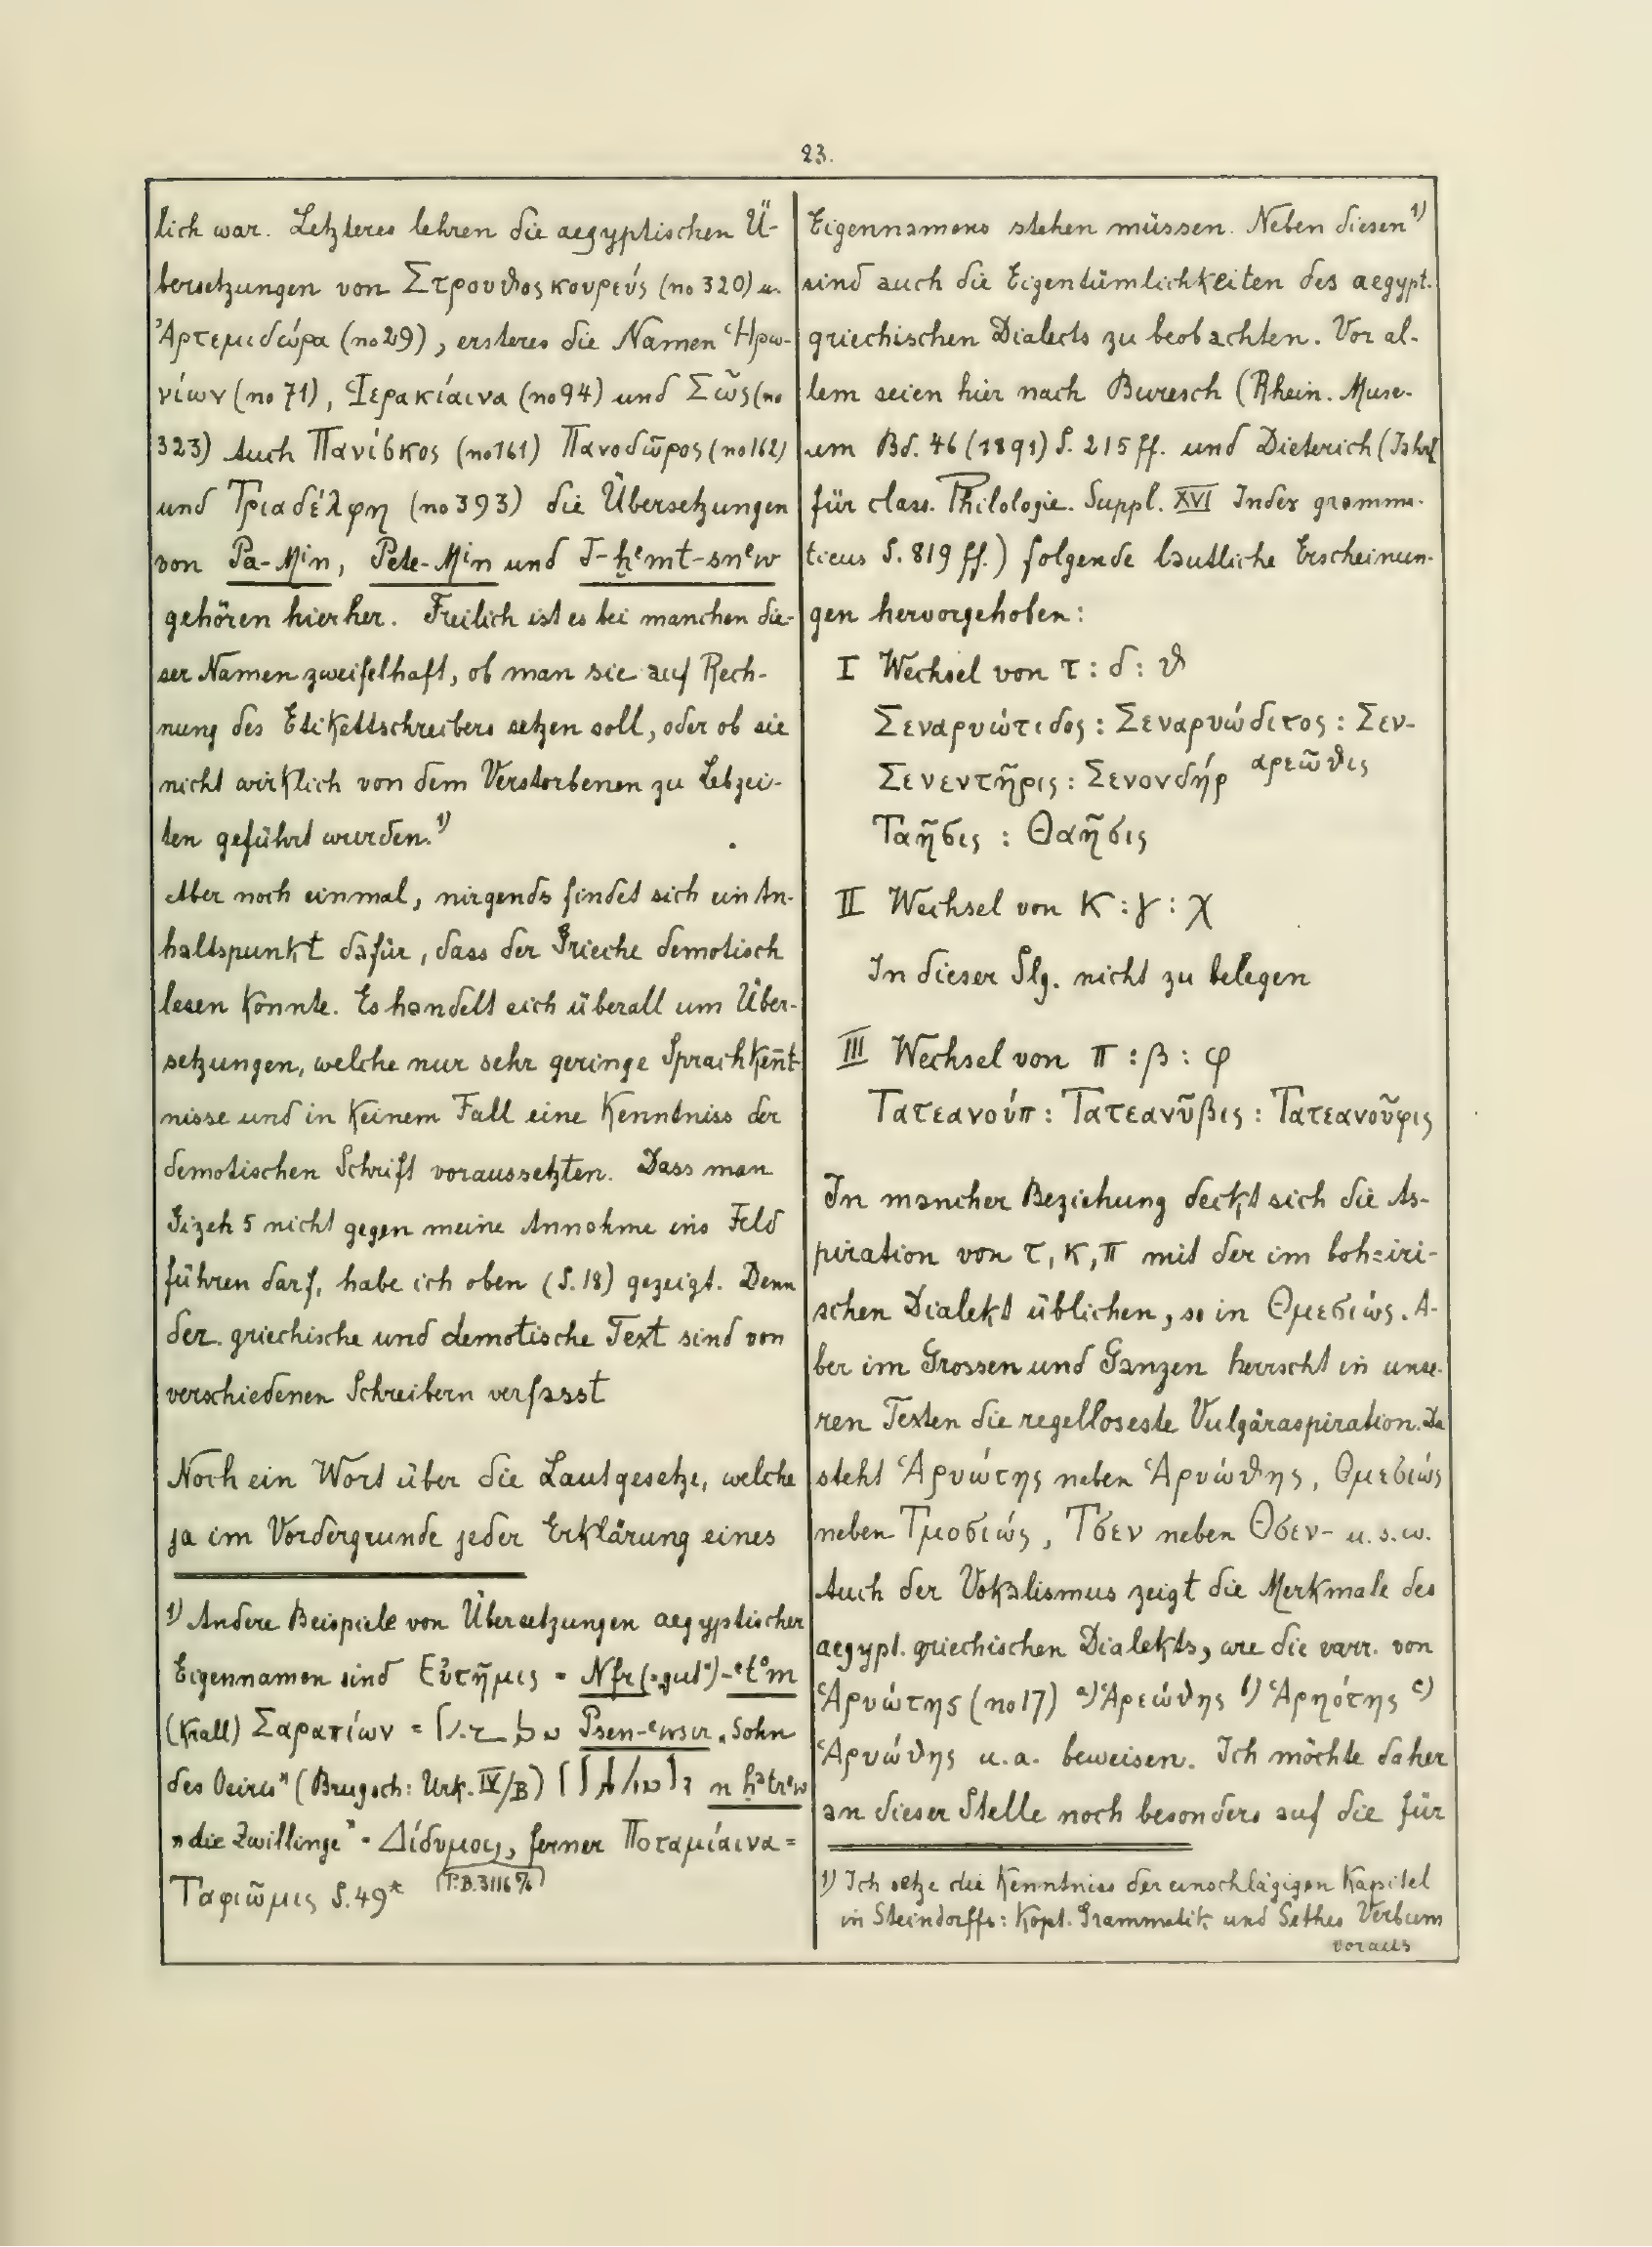 23.
lich war. Letzteres lehren die aegyptischen Ü-
bersetzungen von Στρουθος κουρεύς (no 320) u.
Ἀρτεμιδώρα (no 29), ersteres die Namen Ἡρω-
νίων (no 71), Ἱερακίαινα (no 94) und Σῶς (no
323) Auch Πανίσκος (no 161) Πανοδῶρος (no 162)
und Τριαδέλφη (no 393) die Übersetzungen
von Pa-Mⁱn, Pete-Mⁱn und T-ḫᵉmt-snᵉw
gehören hierher. Freilich ist es bei manchen die-
ser Namen zweifelhaft, ob man sie auf Rech-
nung des Etikettschreibers setzen soll, oder ob sie
nicht wirklich von dem Verstorbenen zu Lebzei-
ten geführt wurden.¹⁾
Aber noch einmal, nirgends findet sich ein An-
haltspunkt dafür, dass der Grieche demotisch
lesen konnte. Es handelt sich überall um Über-
setzungen, welche nur sehr geringe Sprachken̄t-
nisse und in keinem Fall eine Kenntniss der
demotischen Schrift voraussetzten. Dass man
Gizeh 5 nicht gegen meine Annahme ins Feld
führen darf, habe ich oben (S. 18) gezeigt. Denn
der griechische und demotische Text sind von
verschiedenen Schreibern verfasst
Noch ein Wort über die Lautgesetze, welche
ja im Vordergrunde jeder Erklärung eines
¹⁾ Andere Beispiele von Übersetzungen aegyptischer
Eigennamen sind Εὐτῆμις = Nfr („gut“)-ᵉtᵒm
(Krall) Σαραπίων = Psen-ᵉwsir „Sohn
des Osiris“ (Brugsch: Urk. IV/B) n ḥᵃtrᵉw
„die Zwillinge“ = Δίδυμος, ferner Ποταμίαινα =
(P.B. 3116 %)
Ταφιῶμις S. 49*
Eigennamens stehen müssen. Neben diesen¹⁾
sind auch die Eigentümlichkeiten des aegypt.
griechischen Dialects zu beobachten. Vor al-
lem seien hier nach Buresch (Rhein. Muse-
um Bd. 46 (1891) S. 215 ff. und Dieterich (Jahrb
für class. Philologie. Suppl. XVI Index gramma-
ticus S. 819 ff.) folgende lautliche Erscheinun-
gen hervorgehoben:
I Wechsel von τ : δ : ϑ
Σεναρυώτιδος : Σεναρυώδιτος : Σεν-
αρεῶϑις
Σενεντῆρις : Σενονδήρ
Ταῆσις : Θαῆσις
II Wechsel von κ : γ : χ
In dieser Slg. nicht zu belegen
III Wechsel von π : β : φ
Τατεανούπ : Τατεανῦβις : Τατεανοῦφις
In mancher Beziehung deckt sich die As-
piration von τ, κ, π mit der im bohairi-
schen Dialekt üblichen, so in Θμεσιώς. A-
ber im Grossen und Ganzen herrscht in unse-
ren Texten die regelloseste Vulgäraspiration. Da
steht Ἁρυώτης neben Ἁρυώϑης, Θμεσιώς
neben Τμοσιώς, Τσεν neben Θσεν- u. s. w.
Auch der Vokalismus zeigt die Merkmale des
aegypt. griechischen Dialekts, wie die varr. von
Ἁρυώτης (no 17) a) Ἁρεώϑης b) Ἁρηότης c)
Ἁρυώϑης u. a. beweisen. Ich möchte daher
an dieser Stelle noch besonders auf die für
1) Ich setze die Kenntniss der einschlägigen Kapitel
in Steindorffs: Kopt. Grammatik und Sethes Verbum
voraus